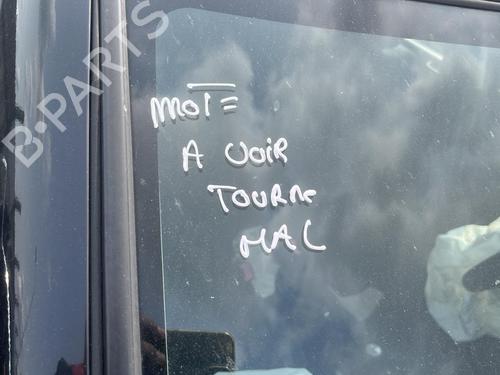 B-PARTS
MOT=
A VOIR
TOURNE
MAL